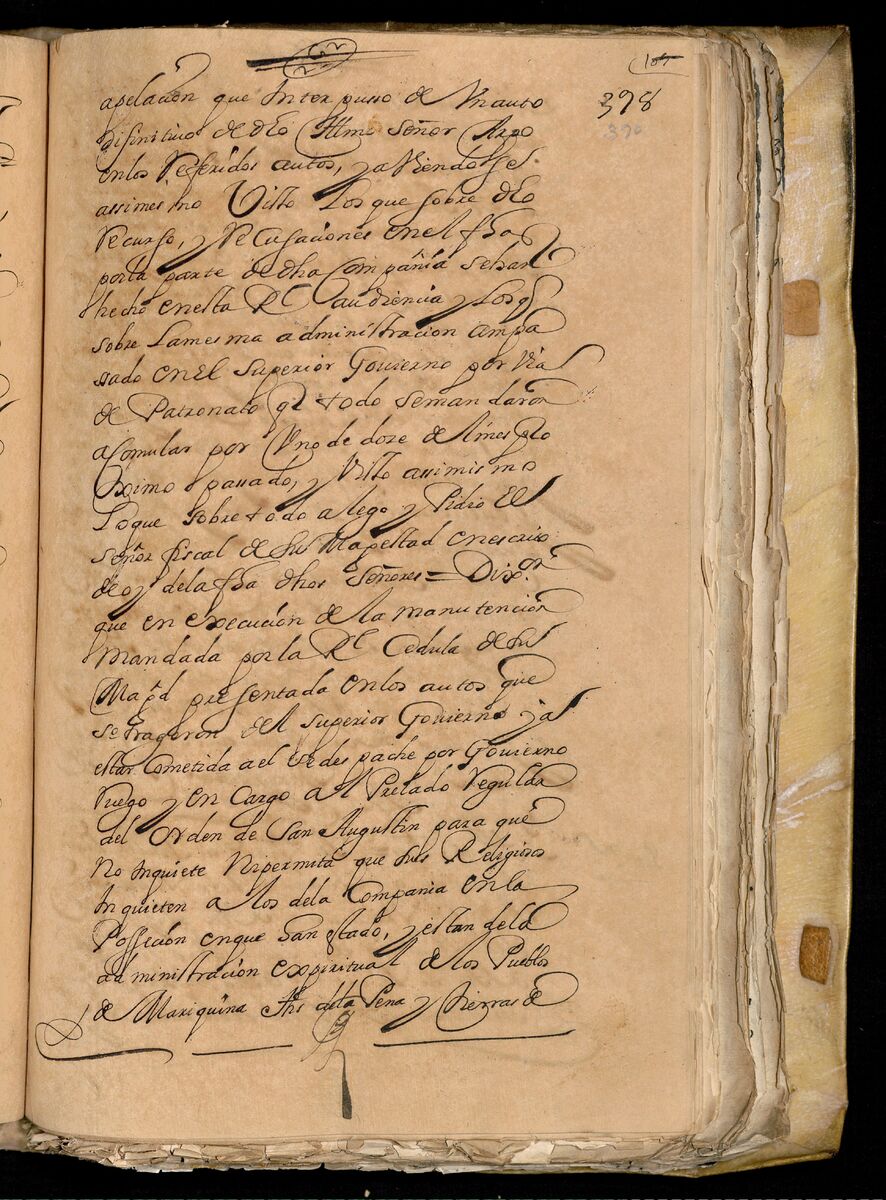 107
398
390
apelación que Interpusso de Vn auto
difinitivo de dho Illmo señor Arzo
en los Referidos autos, y aViendosse
assimesmo Visto Los que sobre dho
Recurso, y ReCusaciones en el fha
por la parte de dha Compañia sehan
hecho en esta Rl audiencia y Los q
sobre La mesma administracion an pa
sado en El superior Govierno por Via
de Patronato qe todo se mandaron
acomular por Vno de doze de el mes pro
ximo passado, y Visto assimismo
Lo que sobre todo alego y Pidio El
señor fiscal de su Magestad en escripto
de oy dela fha dhos señores = Dixon
que en execución de la manutención
Mandada por la Rl Cedula de su
Magd presentada en los autos que
se trageron del superior Govierno y a
estar Cometida a el se despache por Govierno
Ruego y en Cargo al Prelado Regular
del Orden de San Augustin para que
No Inquiete Ni permita que sus Religiosos
Inquieten a los dela Compania en la
Possecion en que han estado, y estan dela
administración expiritual de los Pueblos
de Mariquina Jhs dela Pena y tierras de